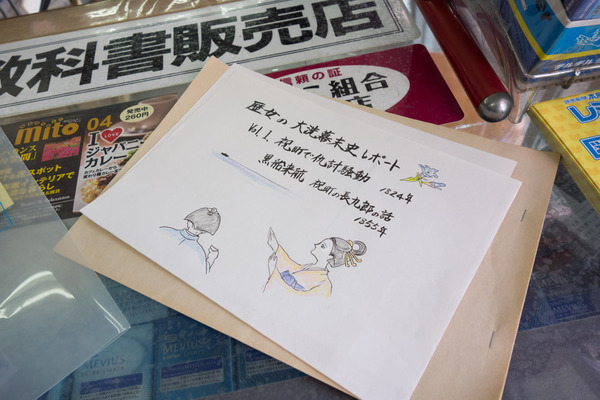 教科書販売店
信頼の証
組合
店
mito 04
発売中
260円
I LOVE
ジャパニーズ
カレー
歴女の大洗幕末史レポート
Vol.1. 祝町で仇討騒動 1824年
黒船来航 祝町の長九郎の話
1853年
MEVIUS
MEVIUS
MEVIUS